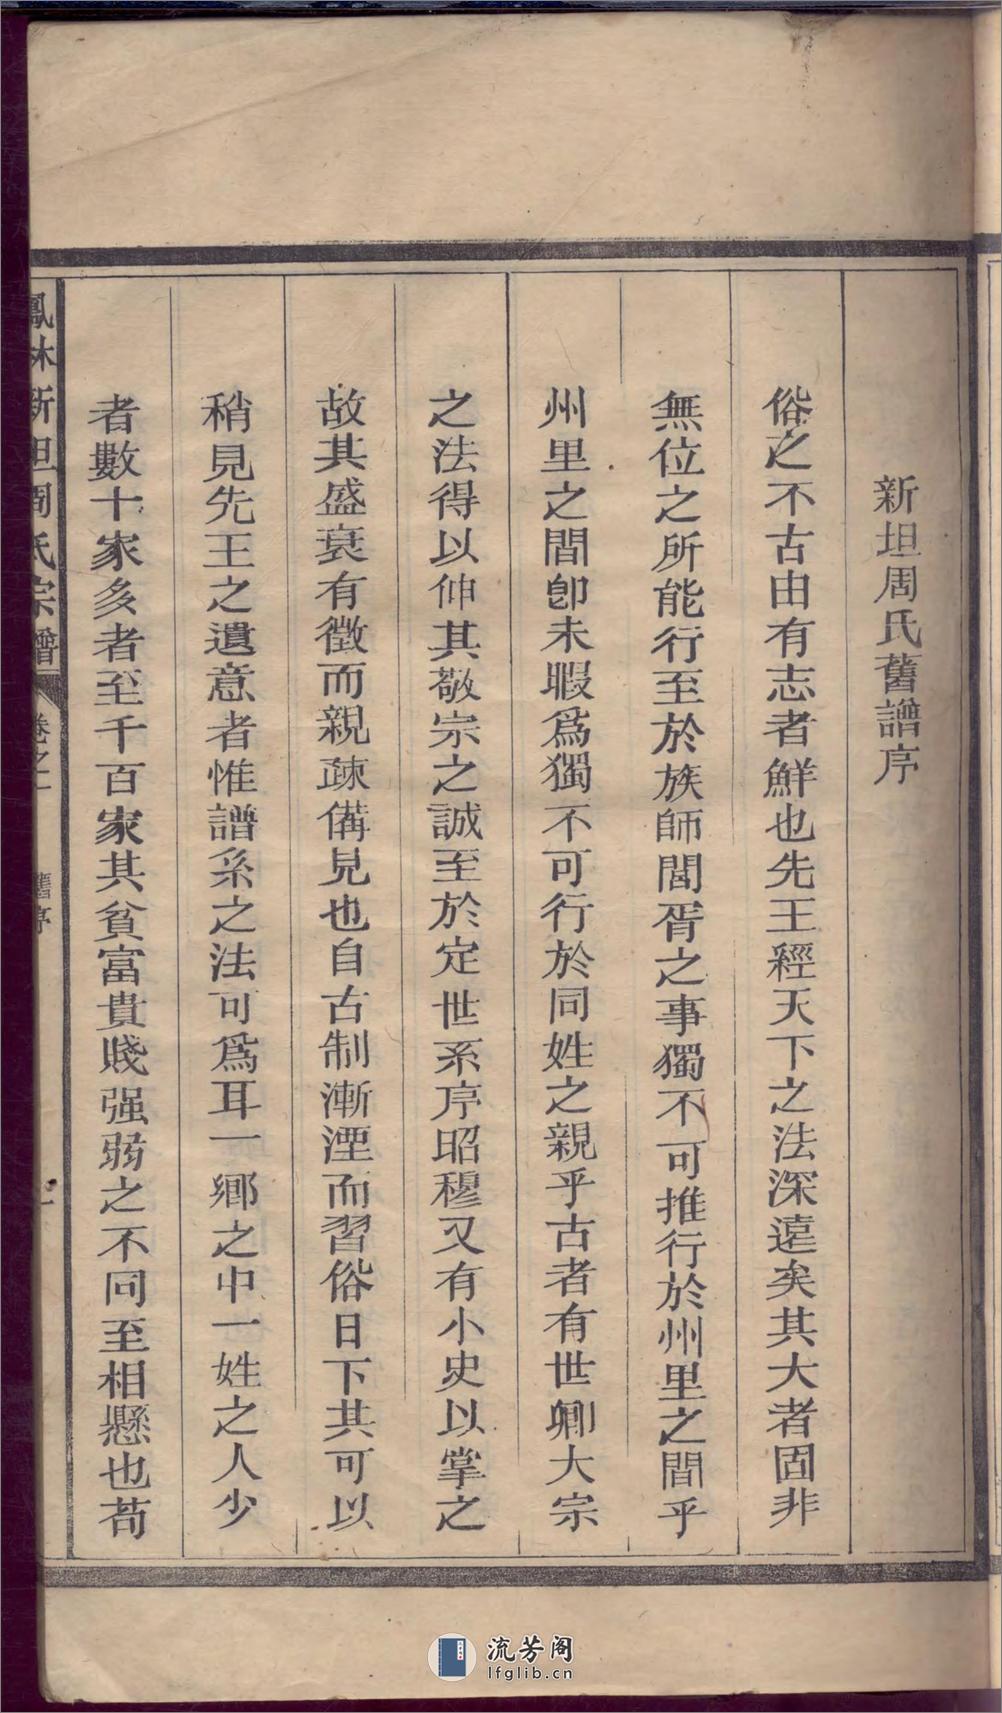 新坦周氏舊譜序
俗之不古由有志者鮮也先王經天下之法深遠矣其大者固非
無位之所能行至於族師閭胥之事獨不可推行於州里之間乎
州里之間卽未暇爲獨不可行於同姓之親乎古者有世卿大宗
之法得以伸其敬宗之誠至於定世系序昭穆又有小史以掌之
故其盛衰有徵而親疎備見也自古制漸湮而習俗日下其可以
稍見先王之遺意者惟譜系之法可爲耳一鄉之中一姓之人少
者數十家多者至千百家其貧富貴賤强弱之不同至相懸也苟
鳳林新坦周氏宗譜
卷之一
舊序
一
流芳阁
lfglib.cn